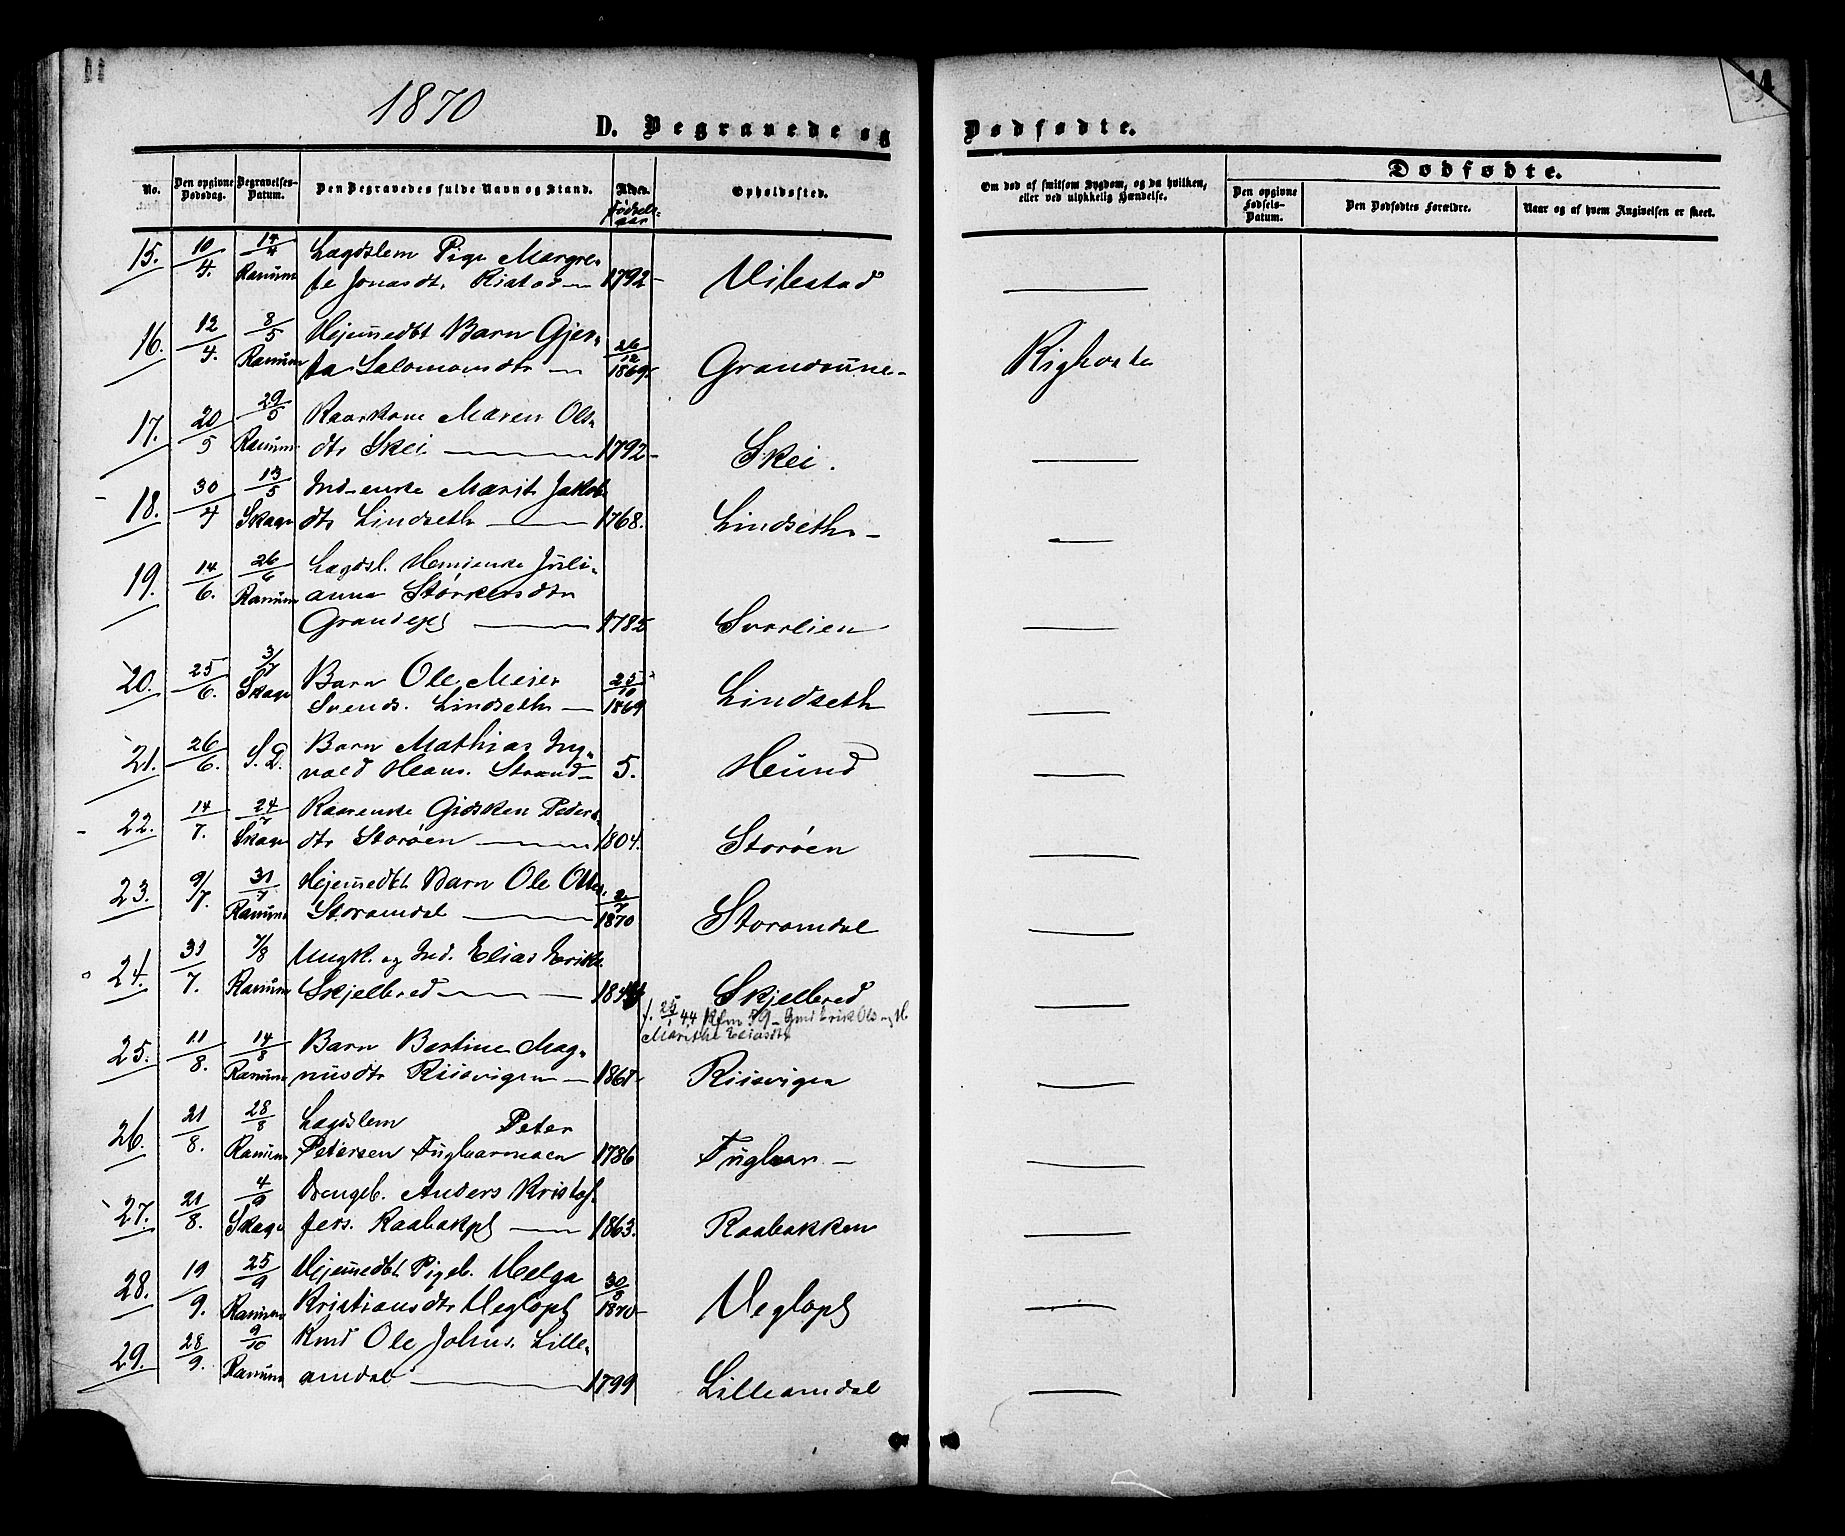 11
1870
D. Begravede og Dødfødte.
No.
Den opgivne Dødsdag.
Begravelses-Datum.
Den Begravedes fulde Navn og Stand.
Alder.
Fødsels-aar
Opholdssted.
Om død af smitsom Sygdom, og da hvilken, eller ved ulykkelig Hændelse.
Dødfødte.
Den opgivne Fødsels-Datum.
Den Dødfødtes Forældre.
Naar og af hvem Angivelsen er skeet.
15. 10/4. 14/4 Lægdslem Pige Margre-
Ranum te Jonasdtr Ristad 1792 Vibstad
16. 12/4. 8/5 Hjemmedbt Barn Gjer-
Ranum ta Salomonsdtr 26/12 1869. Grandaune Kighoste
17. 20/5 29/5 Kaarkone Maren Ols-
Ranum dtr Skei 1792 Skei.
18. 30/4 15/5 Ind-enke Marit Jakob
Skage dtr Lindseth 1768. Lindseth
19. 14/6. 26/6 Lægdsl. Hemienke Juli-
Ranum anna Størkersdtr
Grandejet 1785 Svarlien
20. 25/6. 3/7 Barn Ole Meier
Skage Svends. Lindseth 25/10 1869 Lindseth
21. 26/6. S. D. Barn Mathias Ing-
vald Hans. Strand 5. Heund
22. 14/7. 24/7 Kaarenke Gidsken Peders
Skage dtr Storøen 1804. Storøen
23. 9/7. 31/7 Hjemmedbt Barn Ole Ottes.
Ranum Storamdal 2/7 1870 Storamdal
24. 31/7. 7/8 Ungk. og Ind. Elias Eriks.
Ranum Skjelbred 1844 Skjelbred
f. 25/ 44 Kfm 59 - Gmd Erik Ols og H.
Marithe Eliasdtr
25. 11/8. 14/8 Barn Bertine Mag-
Ranum nusdtr Riisvigen 1867 Riisvigen
26. 21/8. 28/8 Lægdslem Peter
Ranum Petersen Fuglaarmoen 1786 Fuglaar
27. 21/8. 4/9 Drengeb. Anders Kristof-
Skage fers. Raabakpl 1863. Raabakken
28. 19/9. 25/9 Hjemmedbt Pigeb. Helga
Ranum Kristiansdtr Veglopl 30/8 1870 Veglopl
29. 28/9. 9/10 Kmd Ole Johns. Lille-
Ranum amdal 1799 Lilleamdal